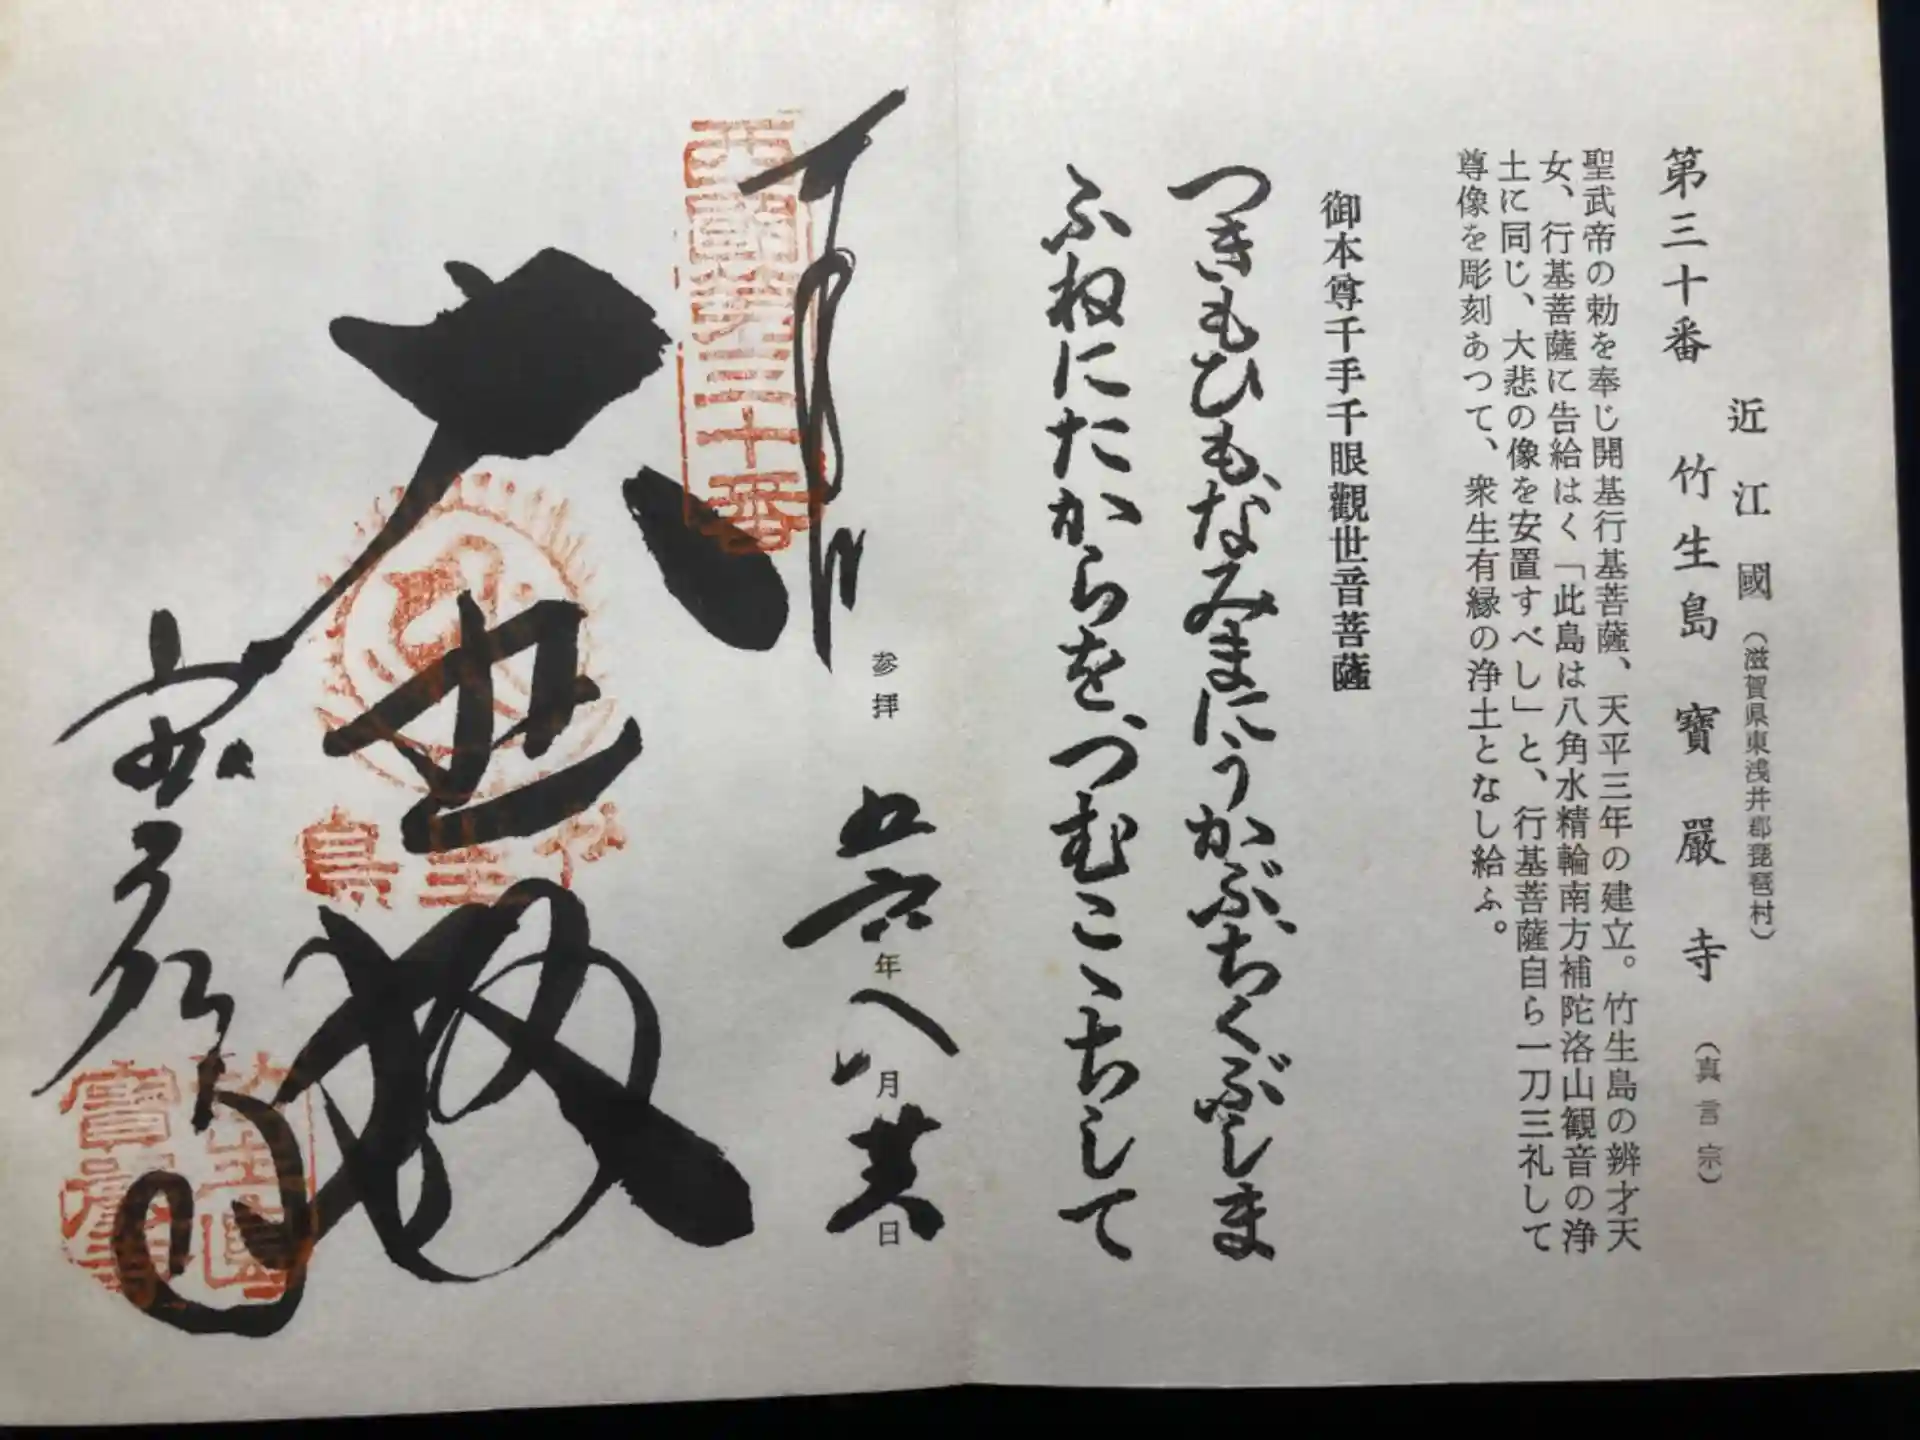 近江國（滋賀県東浅井郡琵琶村）
第三十番 竹生島 寶嚴寺（真言宗）
聖武帝の勅を奉じ開基行基菩薩、天平三年の建立。竹生島の辨才天
女、行基菩薩に告給はく「此島は八角水精輪南方補陀洛山観音の浄
土に同じ、大悲の像を安置すべし」と、行基菩薩自ら一刀三礼して
尊像を彫刻あつて、衆生有縁の浄土となし給ふ。
御本尊千手千眼觀世音菩薩
つきもひも、なみまにうかぶ、ちくぶしま
ふねにたからを、つむこゝちして
奉拝
参拝 五六年八月廿八日
西國第三十番
大悲殿
竹生島
宝厳寺